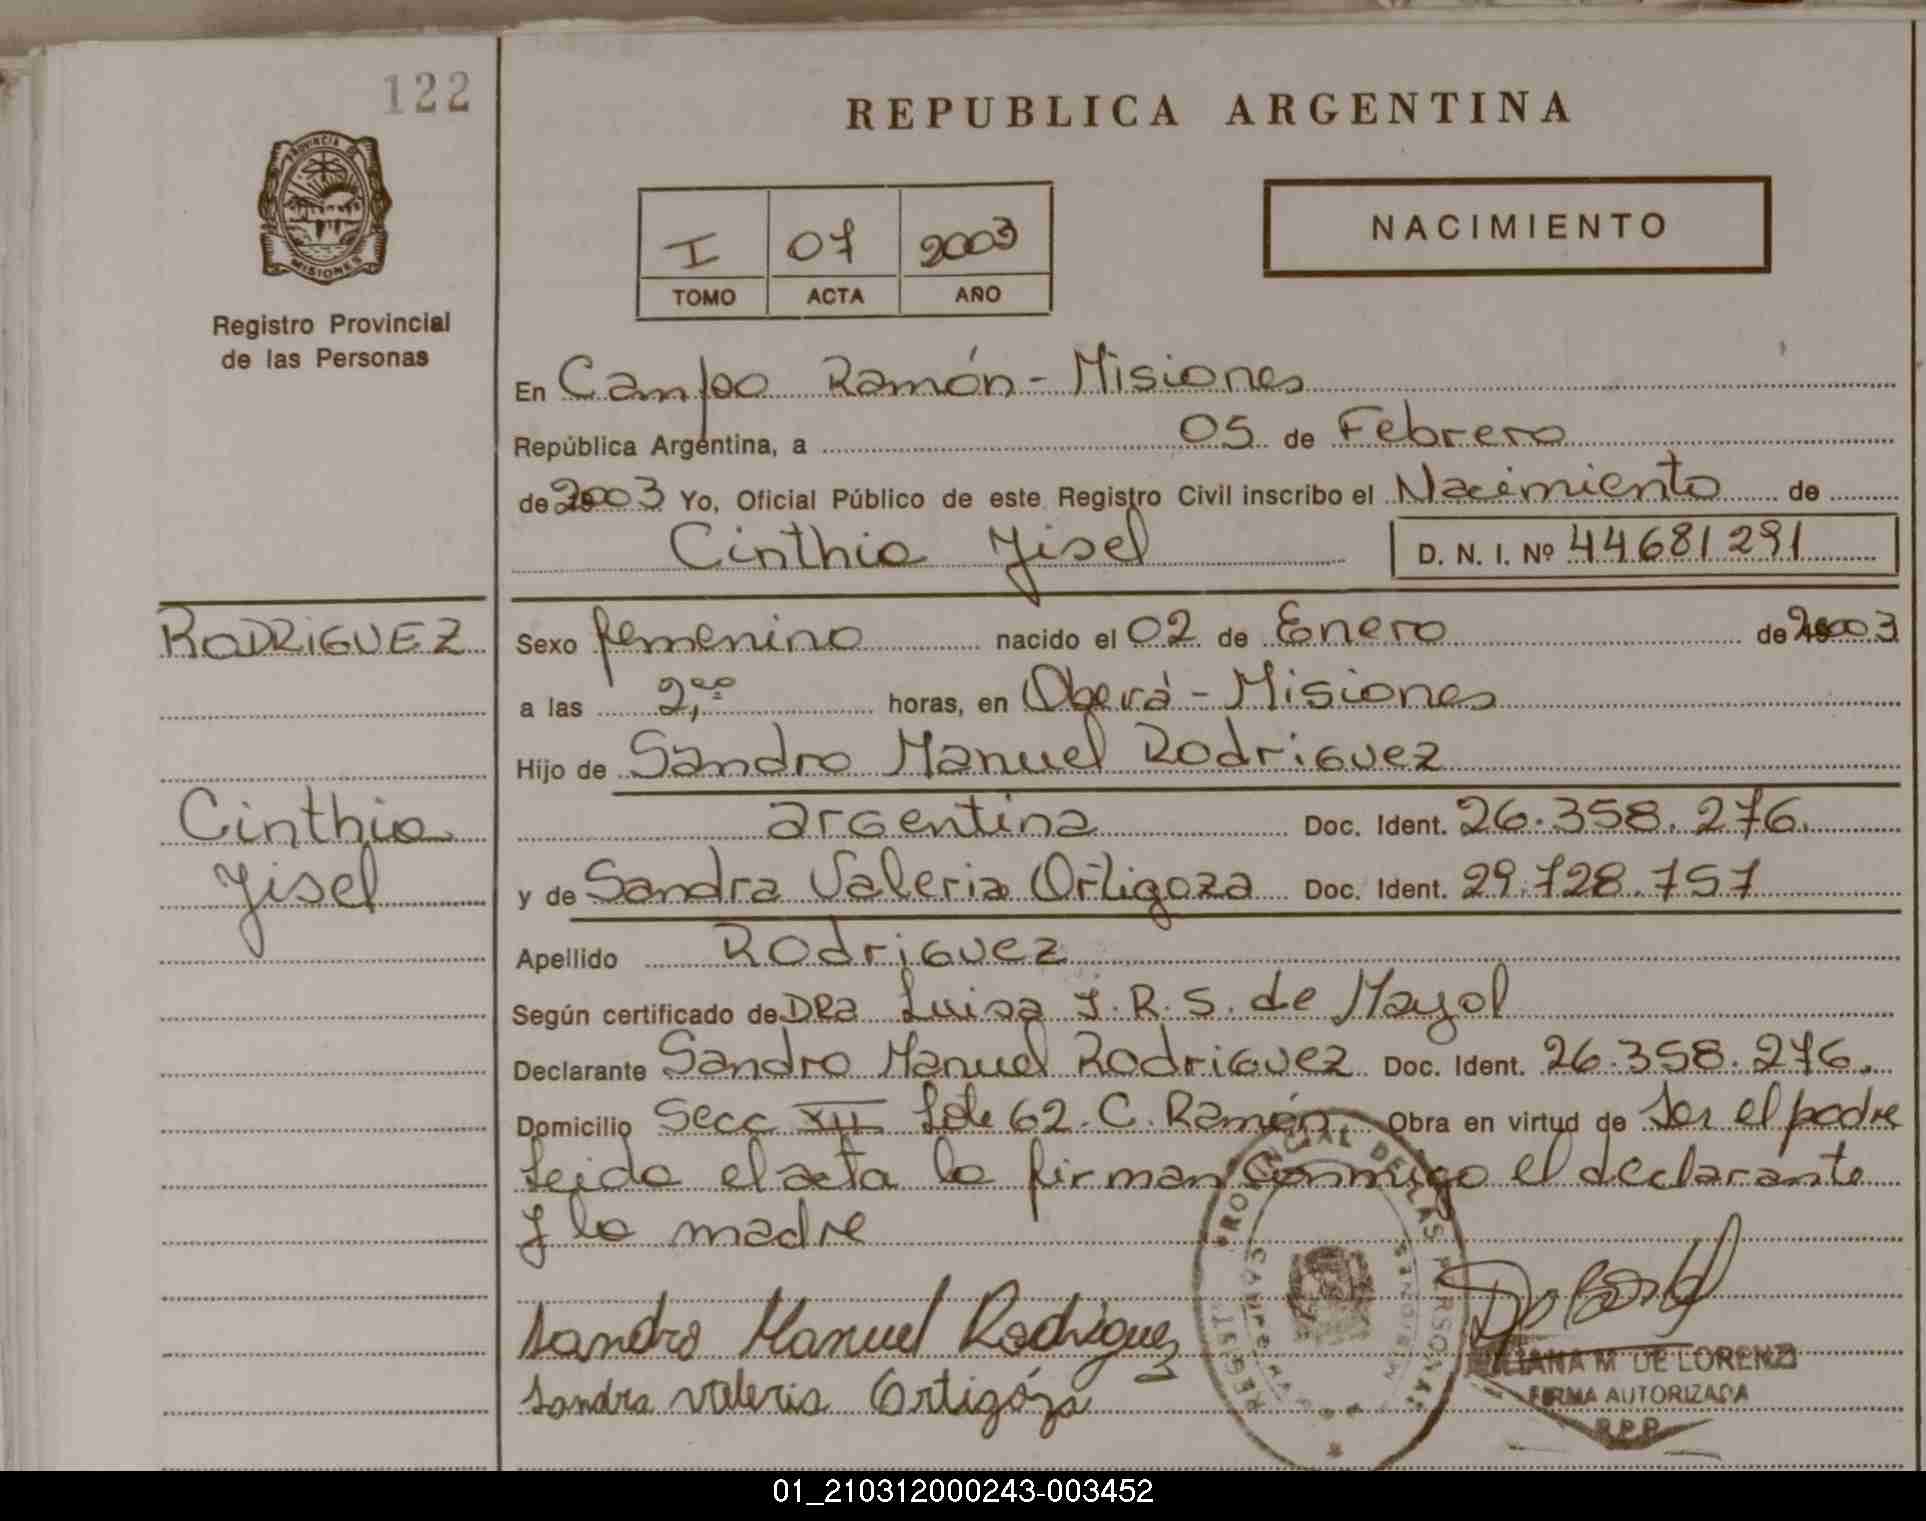 122
PROVINCIA DE
MISIONES
Registro Provincial
de las Personas
REPUBLICA ARGENTINA
I 07 2003
TOMO ACTA AÑO
NACIMIENTO
En Campo Ramón - Misiones
República Argentina, a 05 de Febrero
de 2003 Yo, Oficial Público de este Registro Civil inscribo el Nacimiento de
Cinthia Yisel D. N. I. Nº 44681291
RODRIGUEZ
Cinthia
Yisel
Sexo femenino nacido el 02 de Enero de 2003
a las 2,00 horas, en Oberá - Misiones
Hijo de Sandro Manuel Rodriguez
argentina Doc. Ident. 26.358.276.
y de Sandra Valeria Ortigoza Doc. Ident. 29.728.757
Apellido Rodriguez
Según certificado de DRa Luisa J.R.S. de Mayol
Declarante Sandro Manuel Rodriguez Doc. Ident. 26.358.276.
Domicilio Secc XII Lote 62. C. Ramón Obra en virtud de Ser el padre
Leida el acta la firman conmigo el declarante
y la madre
Sandro Manuel Rodriguez
Sandra Valeria Ortigóza
REGISTRO PROVINCIAL DE LAS PERSONAS
CAMPO RAMON
MISIONES
LILIANA M DE LORENZI
FIRMA AUTORIZADA
R.P.P.
01_210312000243-003452